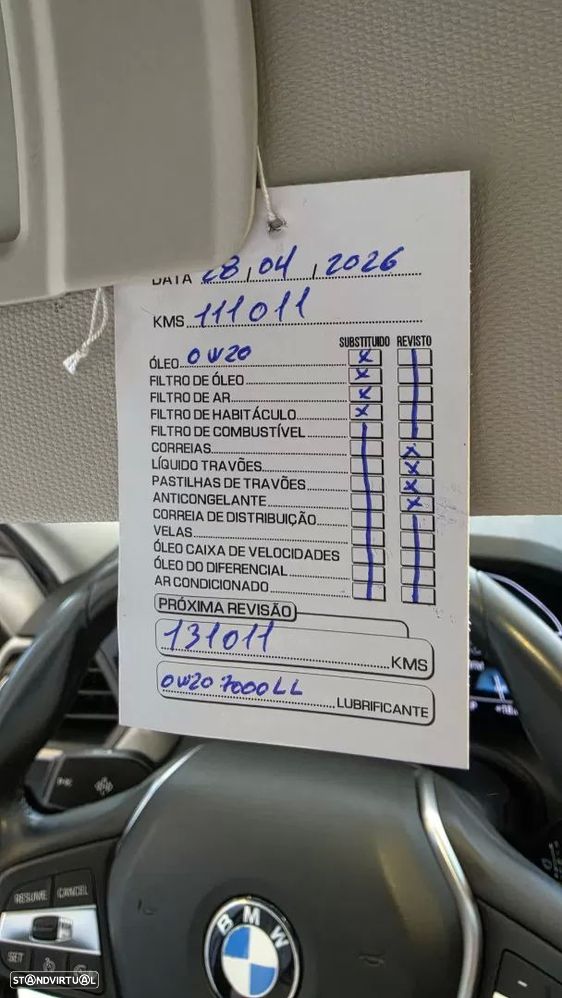 DATA 28 / 04 / 2026
KMS 111011
SUBSTITUIDO REVISTO
ÓLEO 0W20 x
FILTRO DE ÓLEO x
FILTRO DE AR x
FILTRO DE HABITÁCULO x
FILTRO DE COMBUSTÍVEL
CORREIAS x
LÍQUIDO TRAVÕES x
PASTILHAS DE TRAVÕES x
ANTICONGELANTE x
CORREIA DE DISTRIBUIÇÃO
VELAS
ÓLEO CAIXA DE VELOCIDADES
ÓLEO DO DIFERENCIAL
AR CONDICIONADO
PRÓXIMA REVISÃO
131011 KMS
0W20 7000LL LUBRIFICANTE
RESUME CANCEL
SET
BMW
STANDVIRTUAL